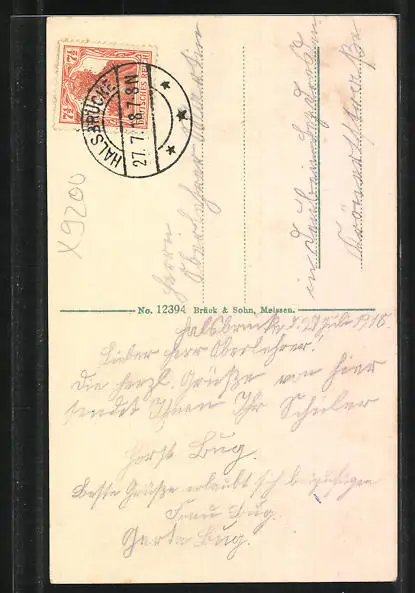 7½ 7½
DEUTSCHES REICH
HALSBRÜCKE
27.7.18.7-8N
X9200
Herrn
Oberlehrer
in
No. 12394 Brück & Sohn, Meissen.
Halsbrücke, d. 27 Juli 1918.
Lieber Herr Oberlehrer!
Die herzl. Grüße von hier
sendet Ihnen Ihr Schüler
Horst Bug.
Beste Grüße erlaubt sich beizufügen
Frau Bug.
Gerta Bug.